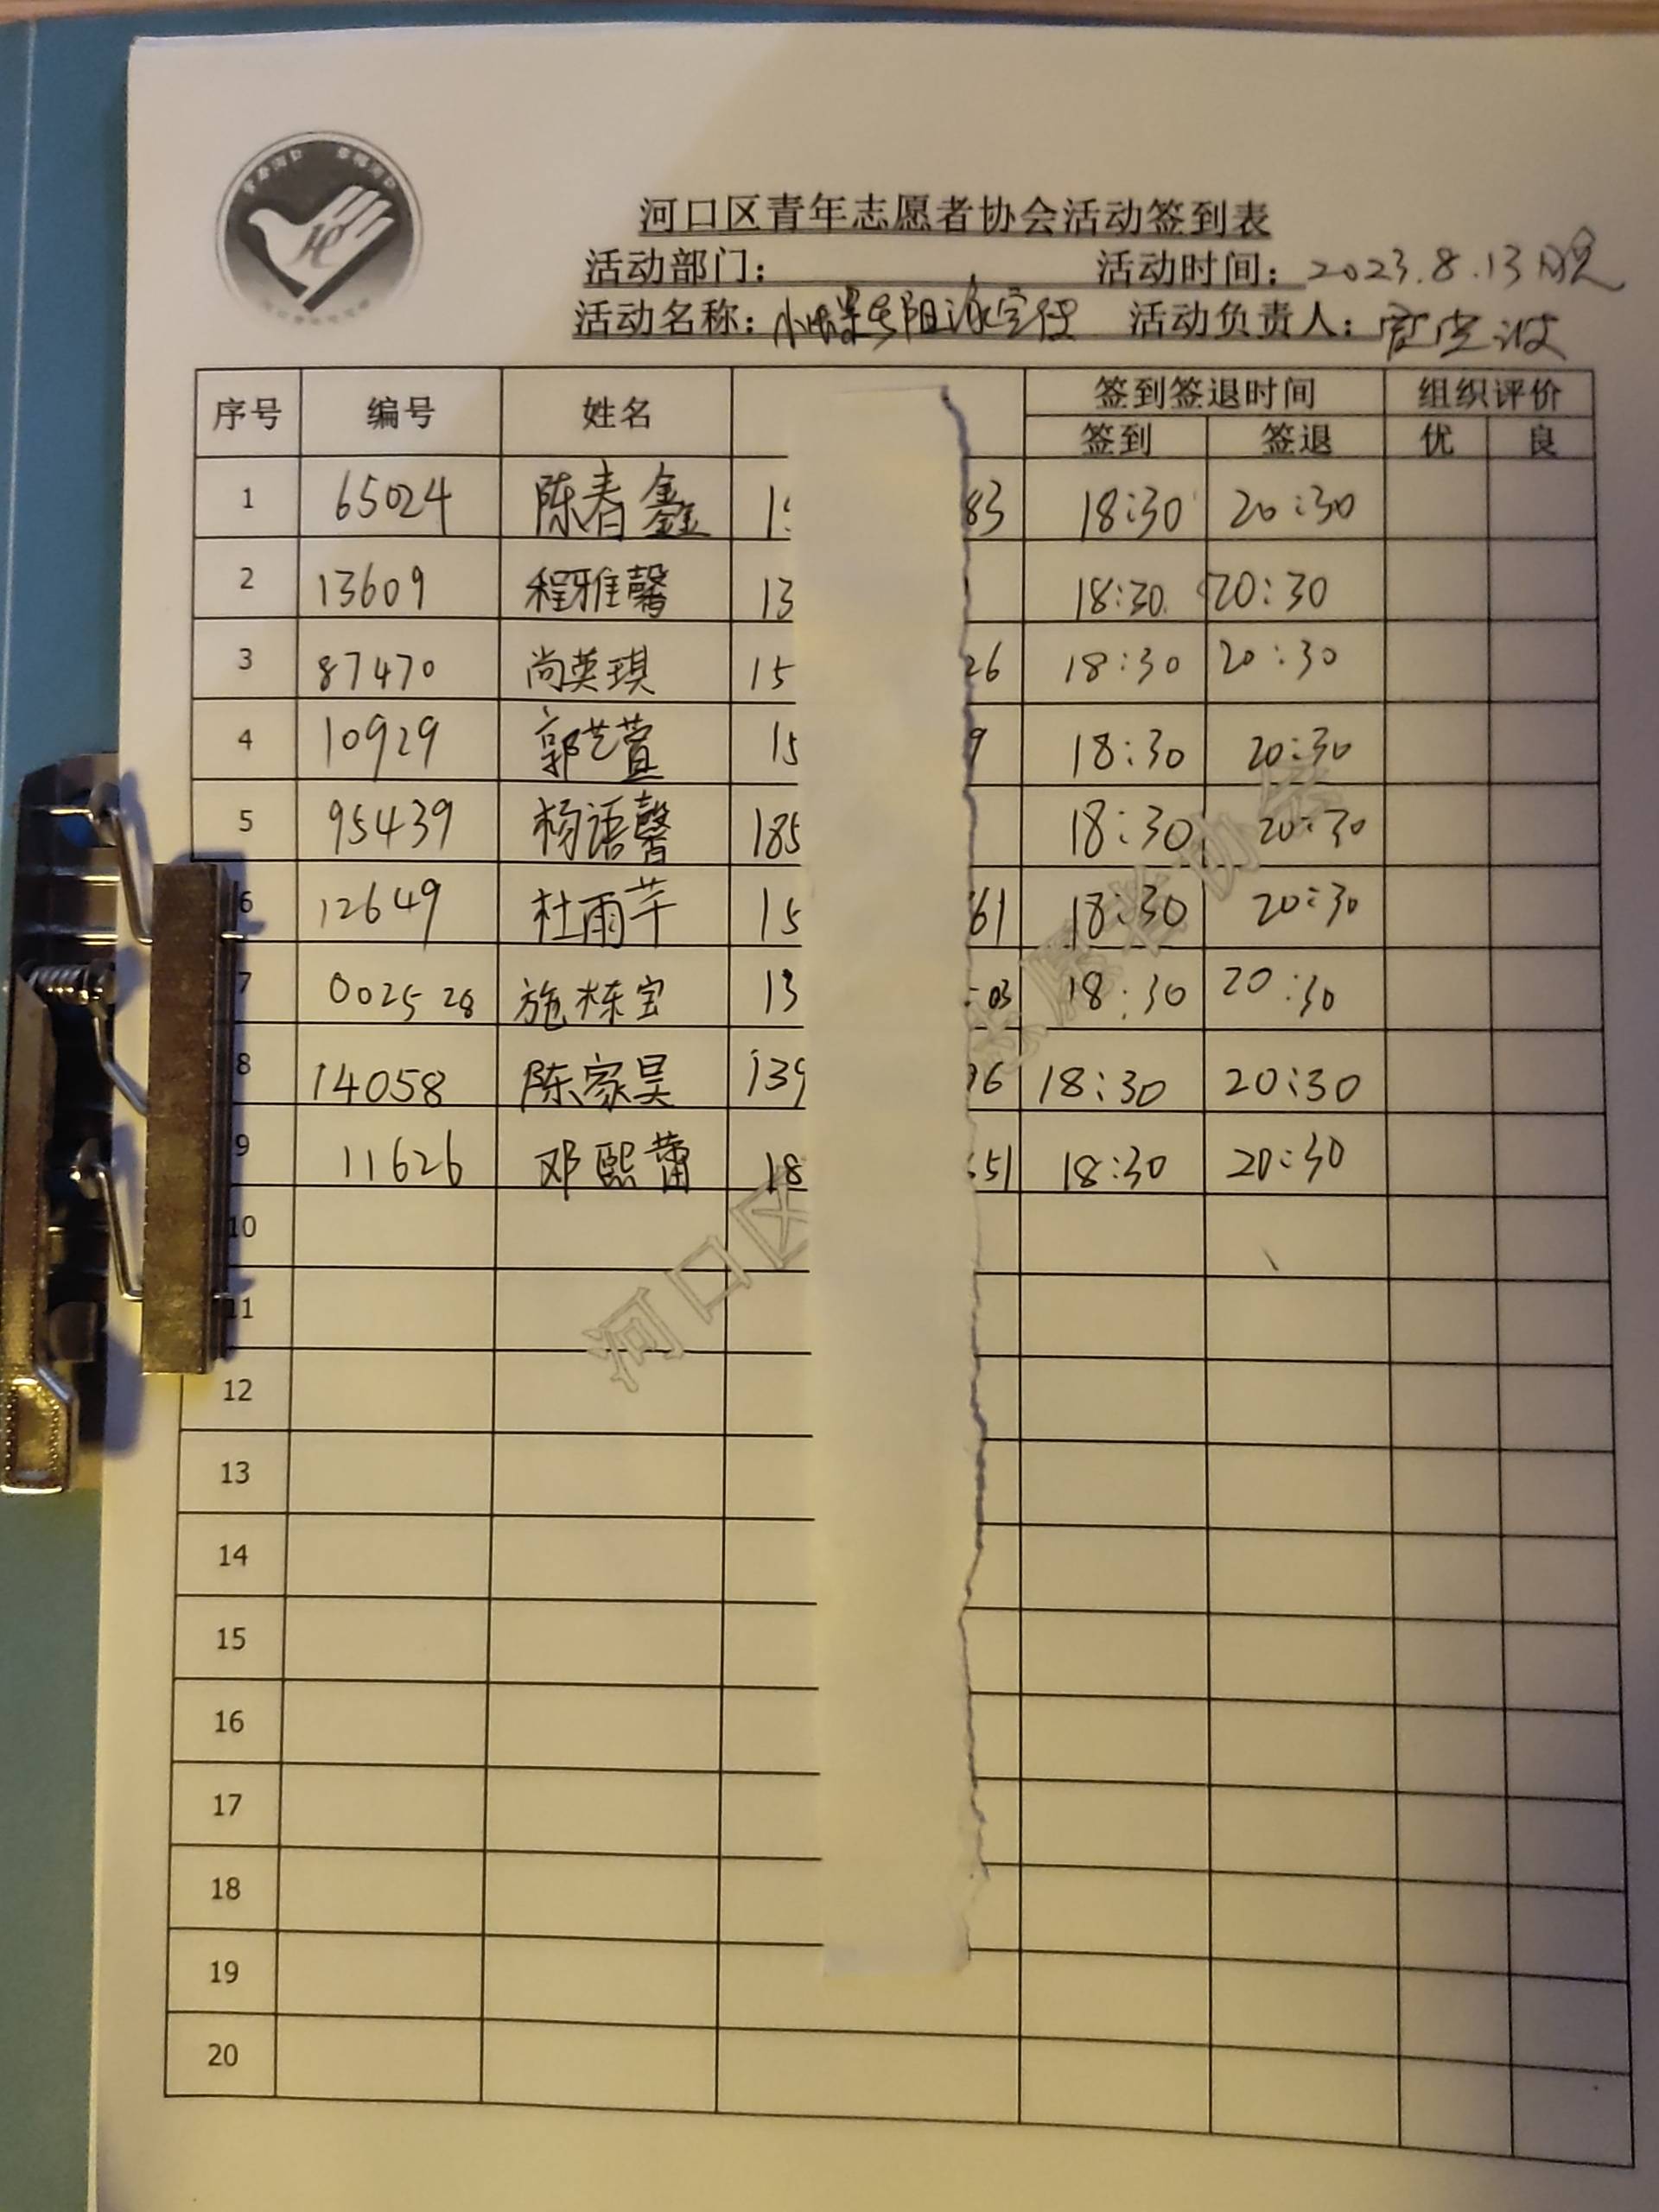 河口区青年志愿者协会活动签到表
活动部门： 活动时间：2023.8.13晚
活动名称： 活动负责人：
序号 编号 姓名 签到签退时间 组织评价
签到 签退 优 良
1 65024 陈春鑫 15 83 18:30 20:30
2 13609 程雅馨 13 18:30 20:30
3 87470 尚英琪 15 26 18:30 20:30
4 10929 郭艺萱 15 9 18:30 20:30
5 95439 杨语馨 185 18:30 20:30
6 12649 杜雨芊 15 61 18:30 20:30
7 002528 施栋宝 13 03 18:30 20:30
8 14058 陈家昊 139 96 18:30 20:30
9 11626 邓熙蕾 18 551 18:30 20:30
10
11
12
13
14
15
16
17
18
19
20
河口区 志愿者协会